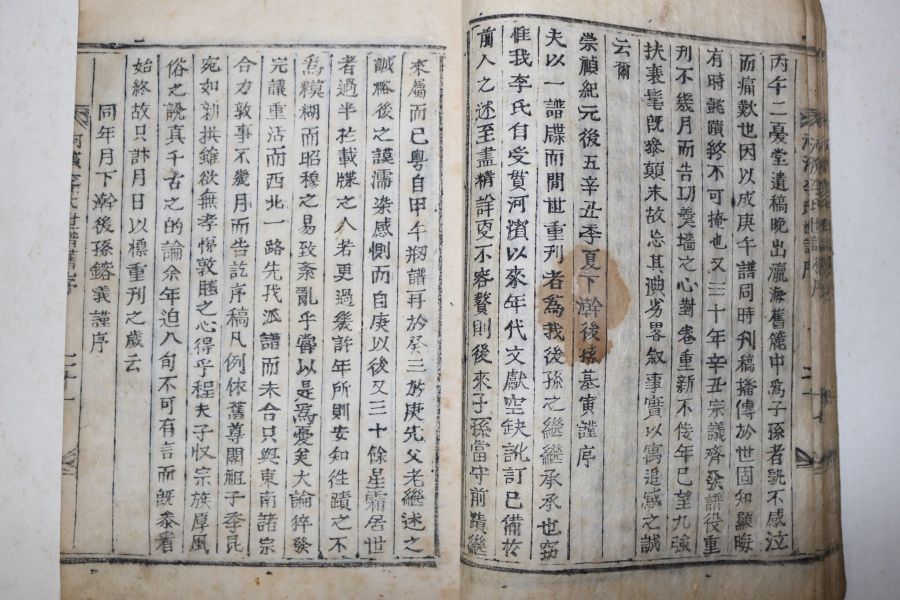 丙午二憂堂遺稿晚出瀛海舊簏中爲子孫者孰不感泣
而痛歎也因以成庚午譜同時刊稿播傳於世固知顯晦
有時懿蹟終不可掩也又三十年辛丑宗議齊發譜役重
刊不幾月而告功羹墻之心對卷重新不佞年已望九強
扶衰髦旣參顛末故忘其謭劣畧叙事實以寓追感之誠
云爾
崇禎紀元後五辛丑季夏下澣後孫基寅謹序
夫以一譜牒而間世重刊者爲我後孫之繼繼承承也竊
惟我李氏自受貫河濱以來年代文獻空缺訛訂已備於
前人之述至盡精詳更不容贅則後來子孫當守前蹟繼
來屬而已粤自甲午刱譜再於癸三於庚先父老繼述之
誠裕後之謨濡染感惻而自庚以後又三十餘星霜居世
者過半矣載牒之人若更過幾許年所則安知徃蹟之不
爲糢糊而昭穆之易致紊亂乎甞以是爲憂矣大論猝發
完議重活而西北一路先我派譜而未合只與東南諸宗
合力敦事不幾月而告訖序稿凡例依舊尊閣祖子季昆
宛如新拱雖欲無孝悌敦睦之心得乎程夫子收宗族厚風
俗之說眞千古之的論余年迫八旬不可有言而旣泰看
始終故只訃月日以標重刊之歲云
同年月下澣後孫鎔義謹序